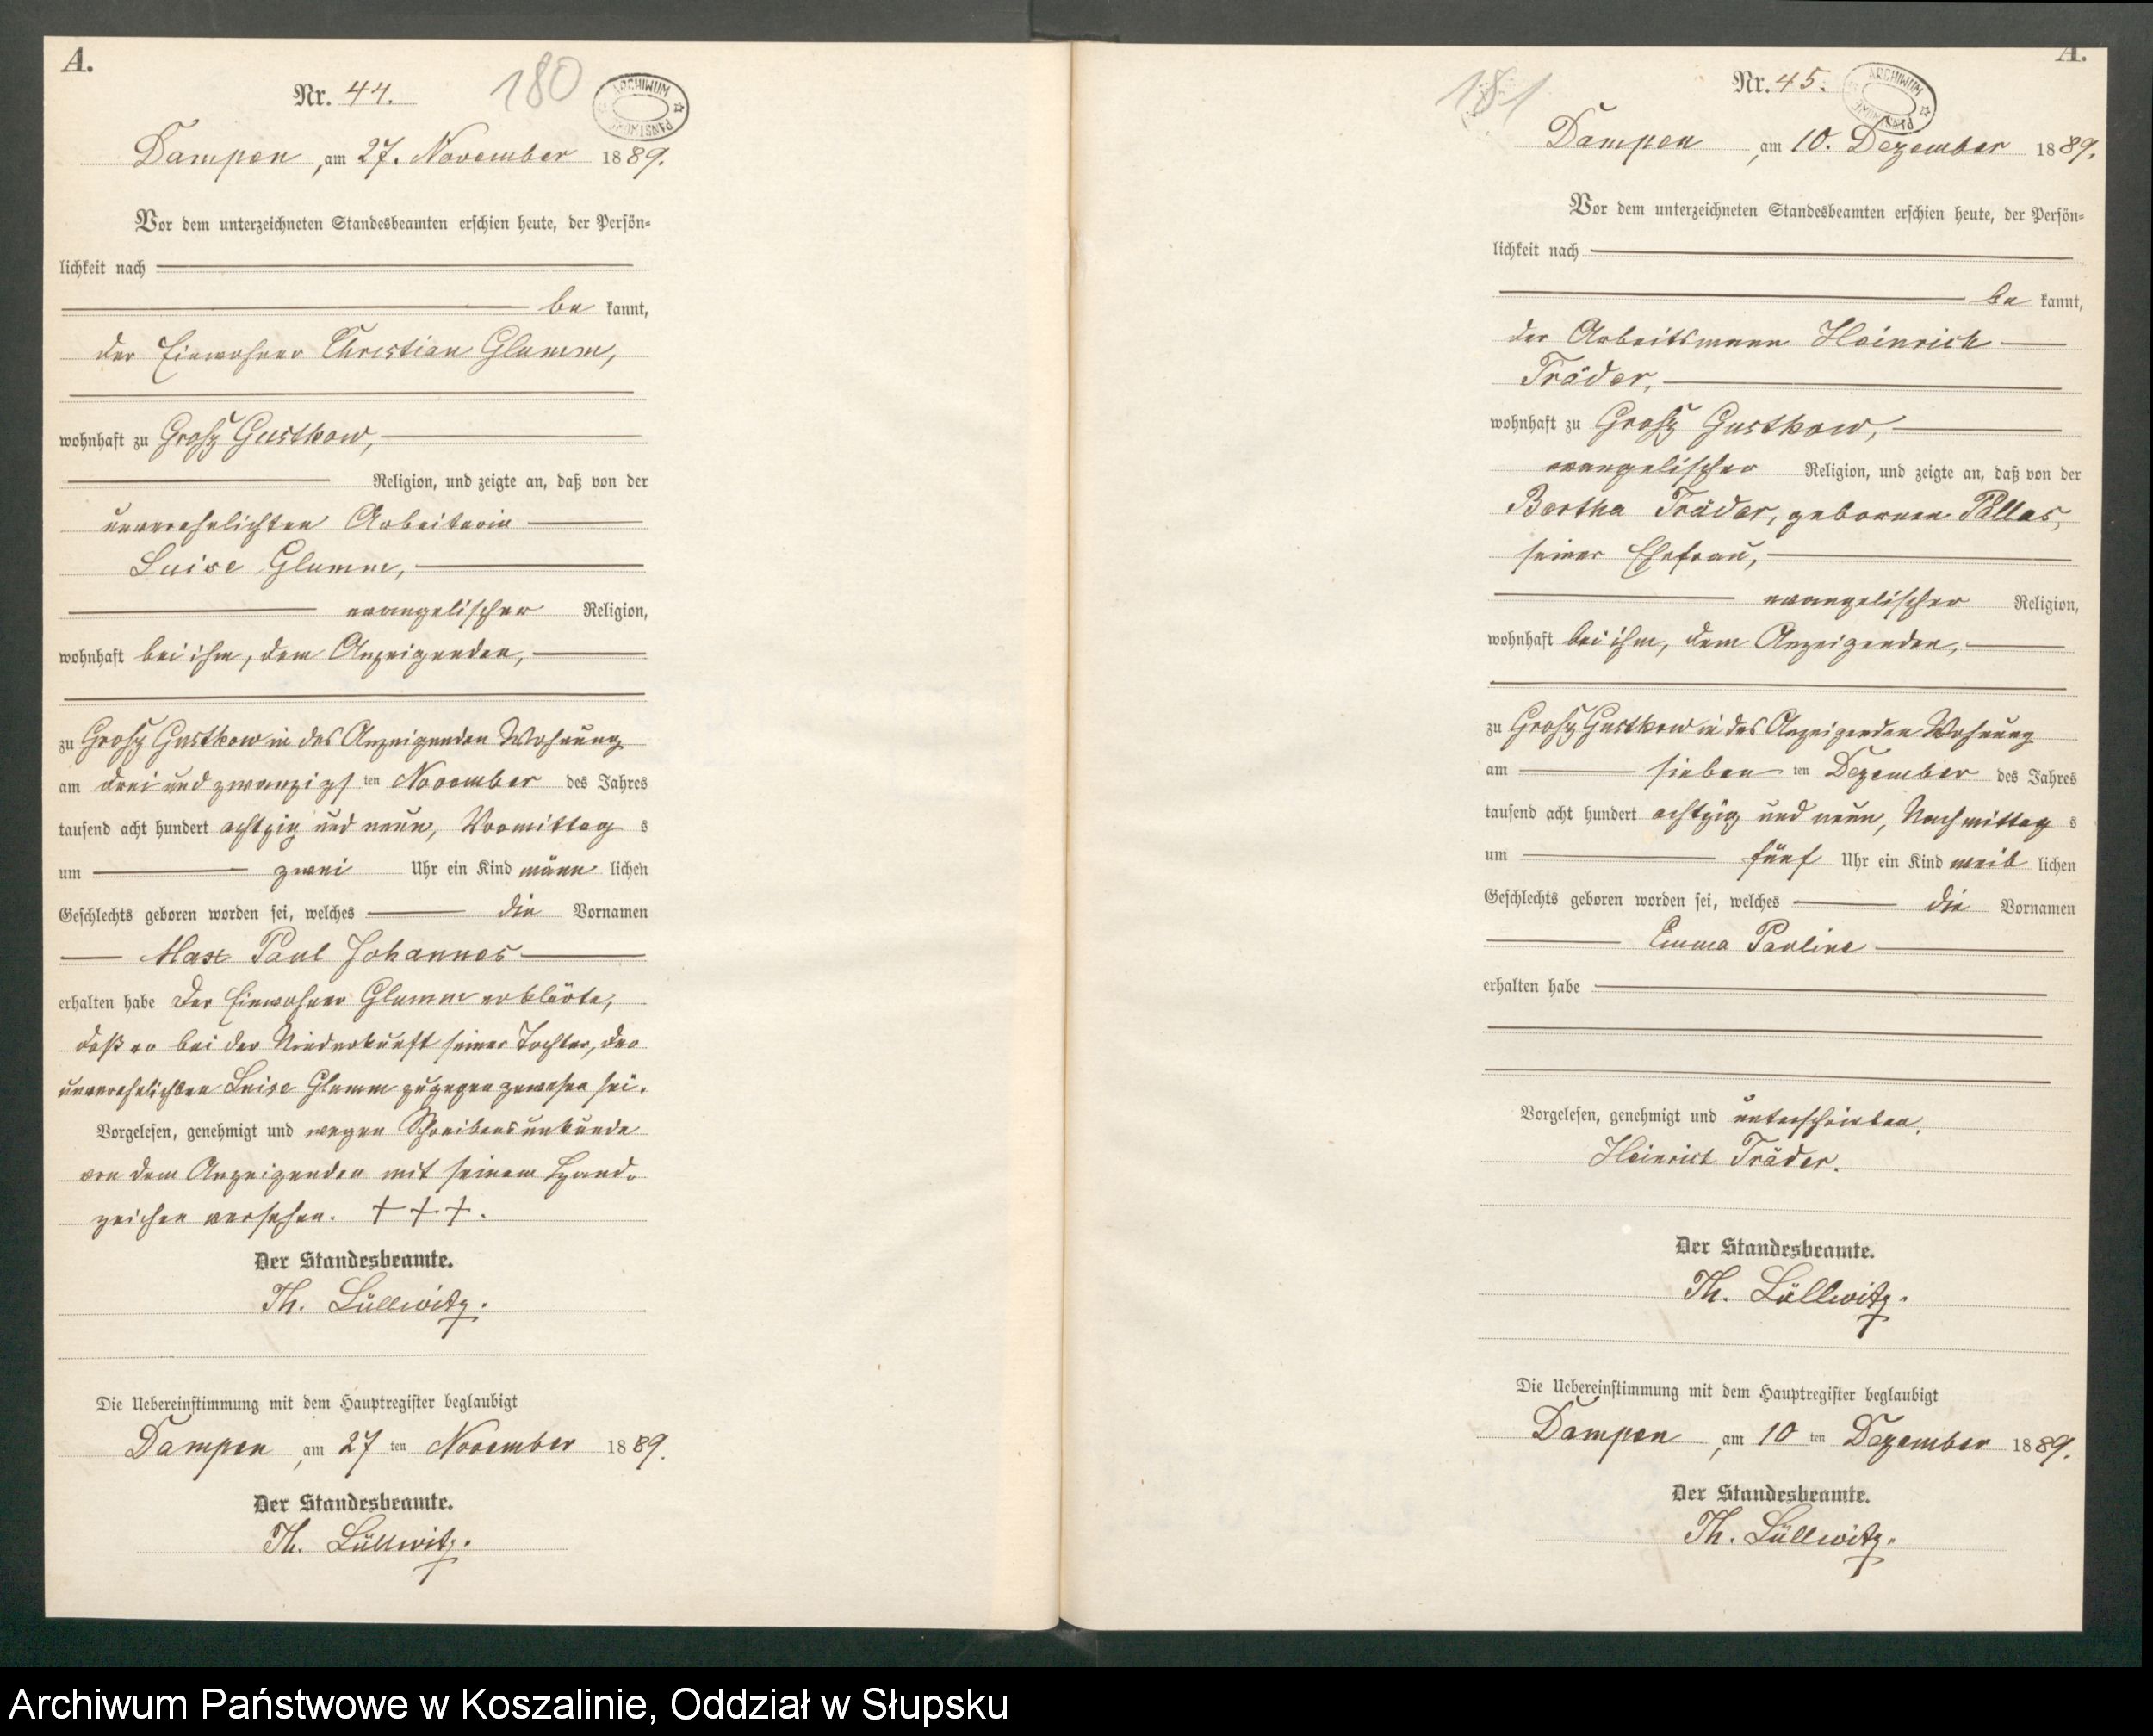 A.
Nr. 44.
180
ARCHIWUM
Dampen, am 27. November 1889.
Vor dem unterzeichneten Standesbeamten erschien heute, der Persön-
lichkeit nach
be kannt,
der Einwohner Christian Glamm,
wohnhaft zu Groß Gustkow,
Religion, und zeigte an, daß von der
unverehelichten Arbeiterin
Luise Glamm,
evangelischer Religion,
wohnhaft bei ihm, dem Anzeigenden,
zu Groß Gustkow in des Anzeigenden Wohnung
am drei und zwanzigsten November des Jahres
tausend acht hundert achtzig und neun, Vormittags
um zwei Uhr ein Kind männlichen
Geschlechts geboren worden sei, welches die Vornamen
Max Paul Johannes
erhalten habe Der Einwohner Glamm erklärte,
daß er bei der Niederkunft seiner Tochter, der
unverehelichten Luise Glamm zugegen gewesen sei.
Vorgelesen, genehmigt und wegen Schreibensunkunde
von dem Anzeigenden mit seinem Hand-
zeichen versehen. + + +.
Der Standesbeamte.
Th. Lüllwitz.
Die Uebereinstimmung mit dem Hauptregister beglaubigt
Dampen, am 27ten November 1889.
Der Standesbeamte.
Th. Lüllwitz.
A.
Nr. 45.
181
ARCHIWUM
Dampen, am 10. Dezember 1889.
Vor dem unterzeichneten Standesbeamten erschien heute, der Persön-
lichkeit nach
be kannt,
der Arbeitsmann Heinrich
Träder,
wohnhaft zu Groß Gustkow,
evangelischer Religion, und zeigte an, daß von der
Bertha Träder, geborenen Pallas,
seiner Ehefrau,
evangelischer Religion,
wohnhaft bei ihm, dem Anzeigenden,
zu Groß Gustkow in des Anzeigenden Wohnung
am siebenten Dezember des Jahres
tausend acht hundert achtzig und neun, Nachmittags
um fünf Uhr ein Kind weiblichen
Geschlechts geboren worden sei, welches die Vornamen
Emma Pauline
erhalten habe
Vorgelesen, genehmigt und unterschrieben.
Heinrich Träder.
Der Standesbeamte.
Th. Lüllwitz.
Die Uebereinstimmung mit dem Hauptregister beglaubigt
Dampen, am 10ten Dezember 1889.
Der Standesbeamte.
Th. Lüllwitz.
Archiwum Państwowe w Koszalinie, Oddział w Słupsku